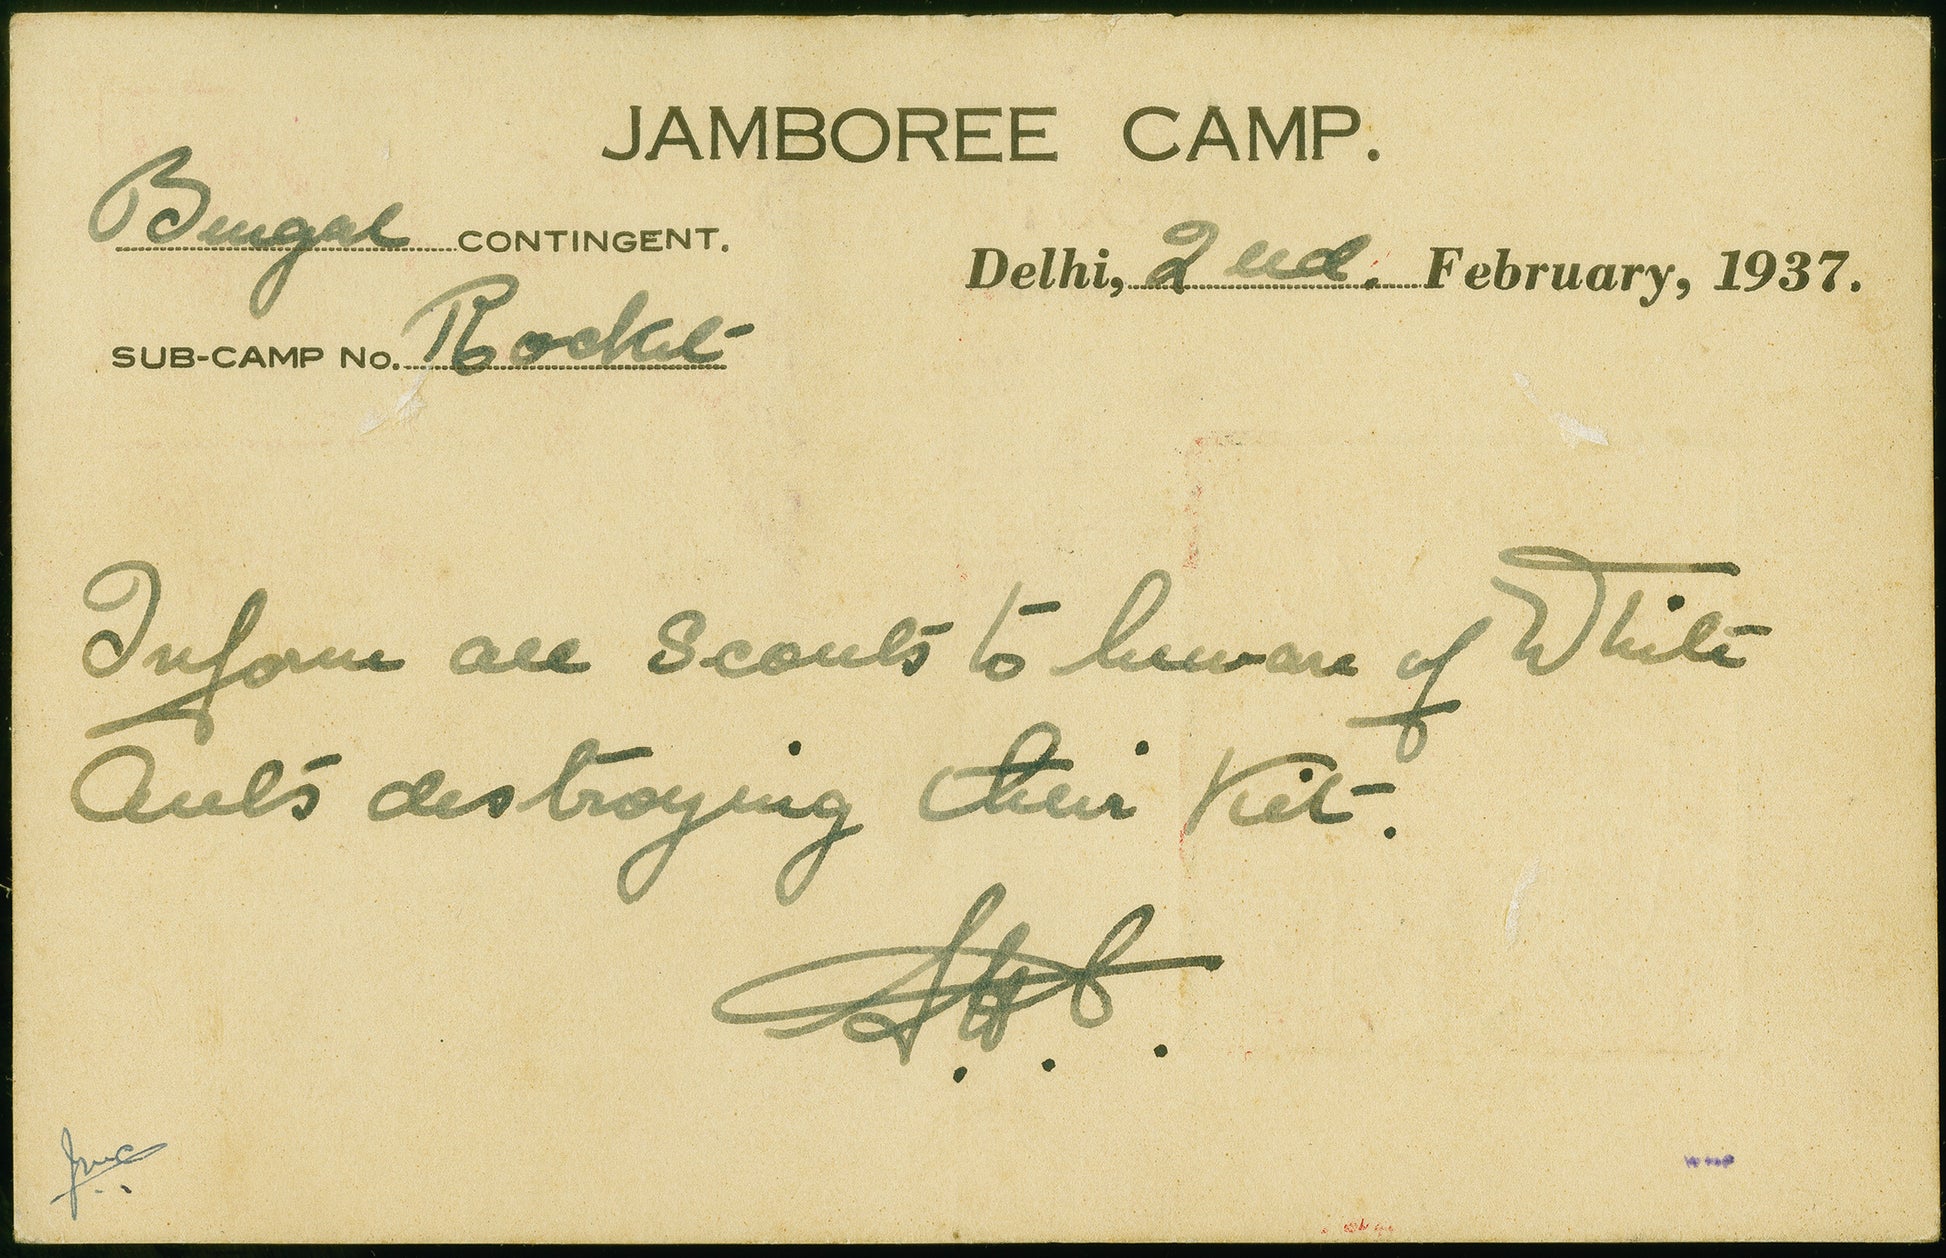 JAMBOREE CAMP.
Bengal CONTINGENT.
Delhi, 2nd. February, 1937.
SUB-CAMP No. Rocket
Inform all Scouts to beware of White
Ants destroying their Kit.